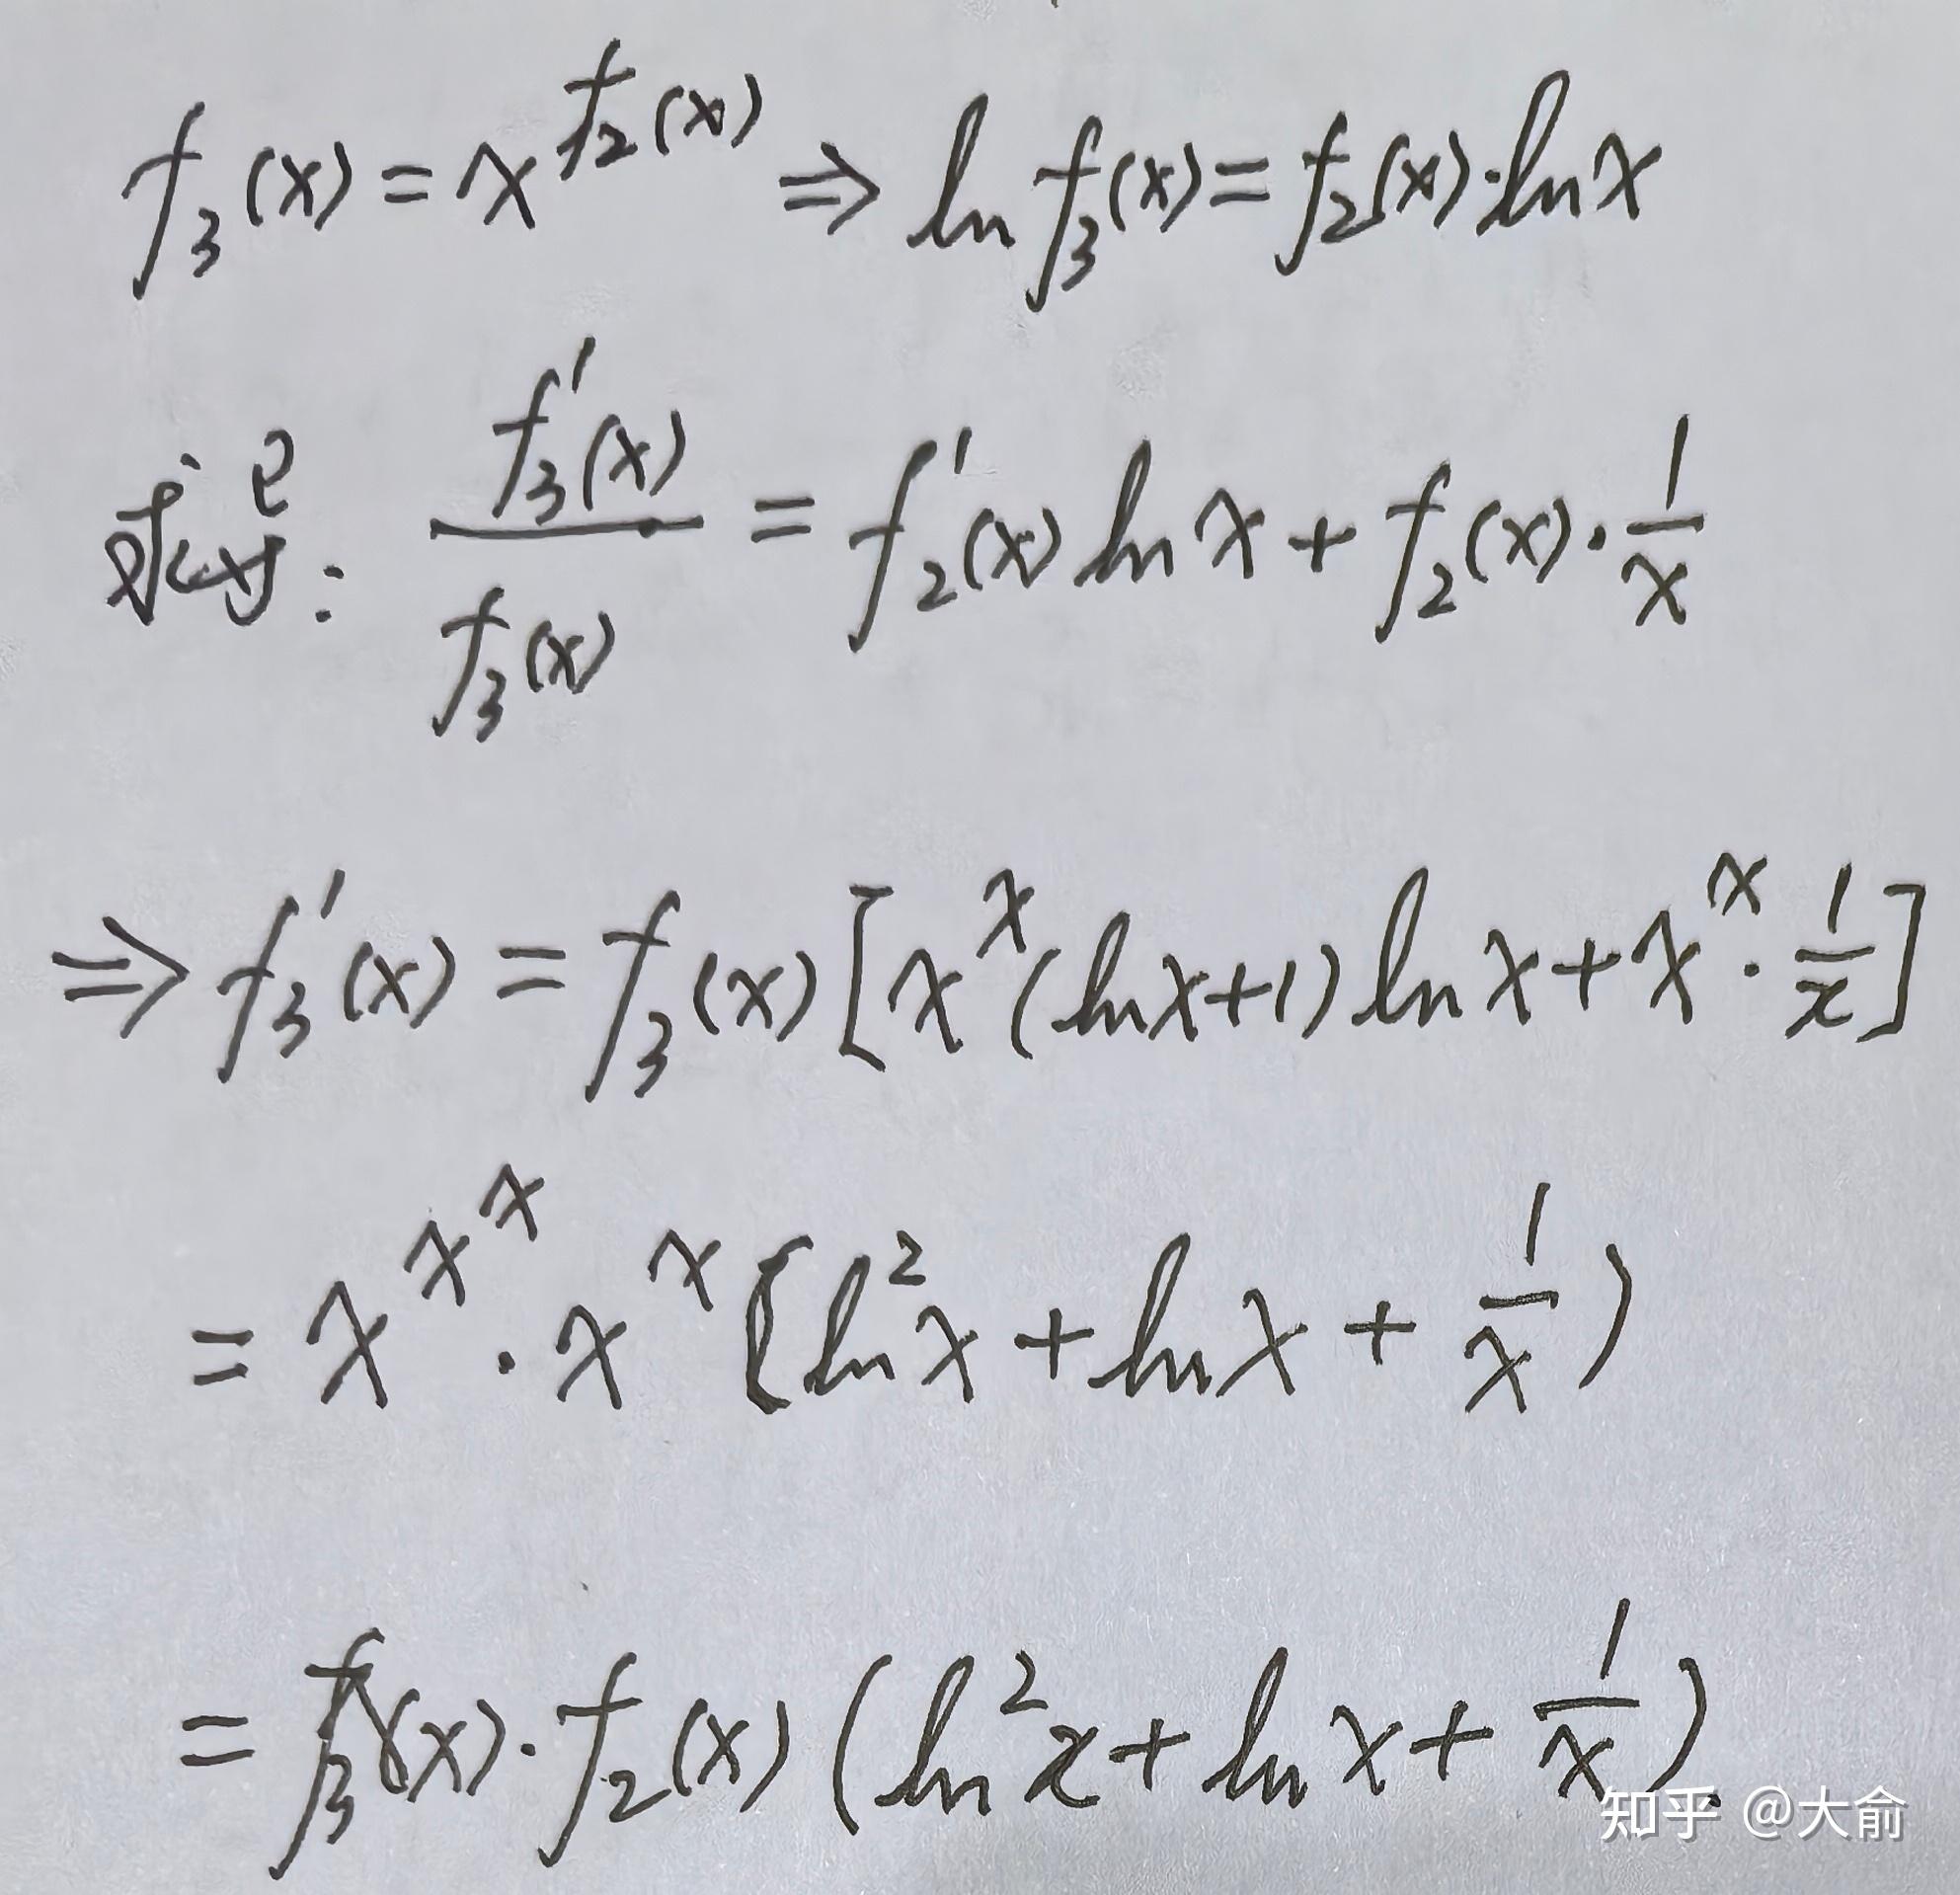 f₃(x) = x^{f₂(x)} ⇒ ln f₃(x) = f₂(x)·ln x
求导: f₃'(x) / f₃(x) = f₂'(x) ln x + f₂(x)·1/x
⇒ f₃'(x) = f₃(x) [x^x (ln x+1) ln x + x^x · 1/x]
= x^{x^x} · x^x (ln²x + ln x + 1/x)
= f₃(x)·f₂(x) (ln²x + ln x + 1/x).
知乎 @大俞